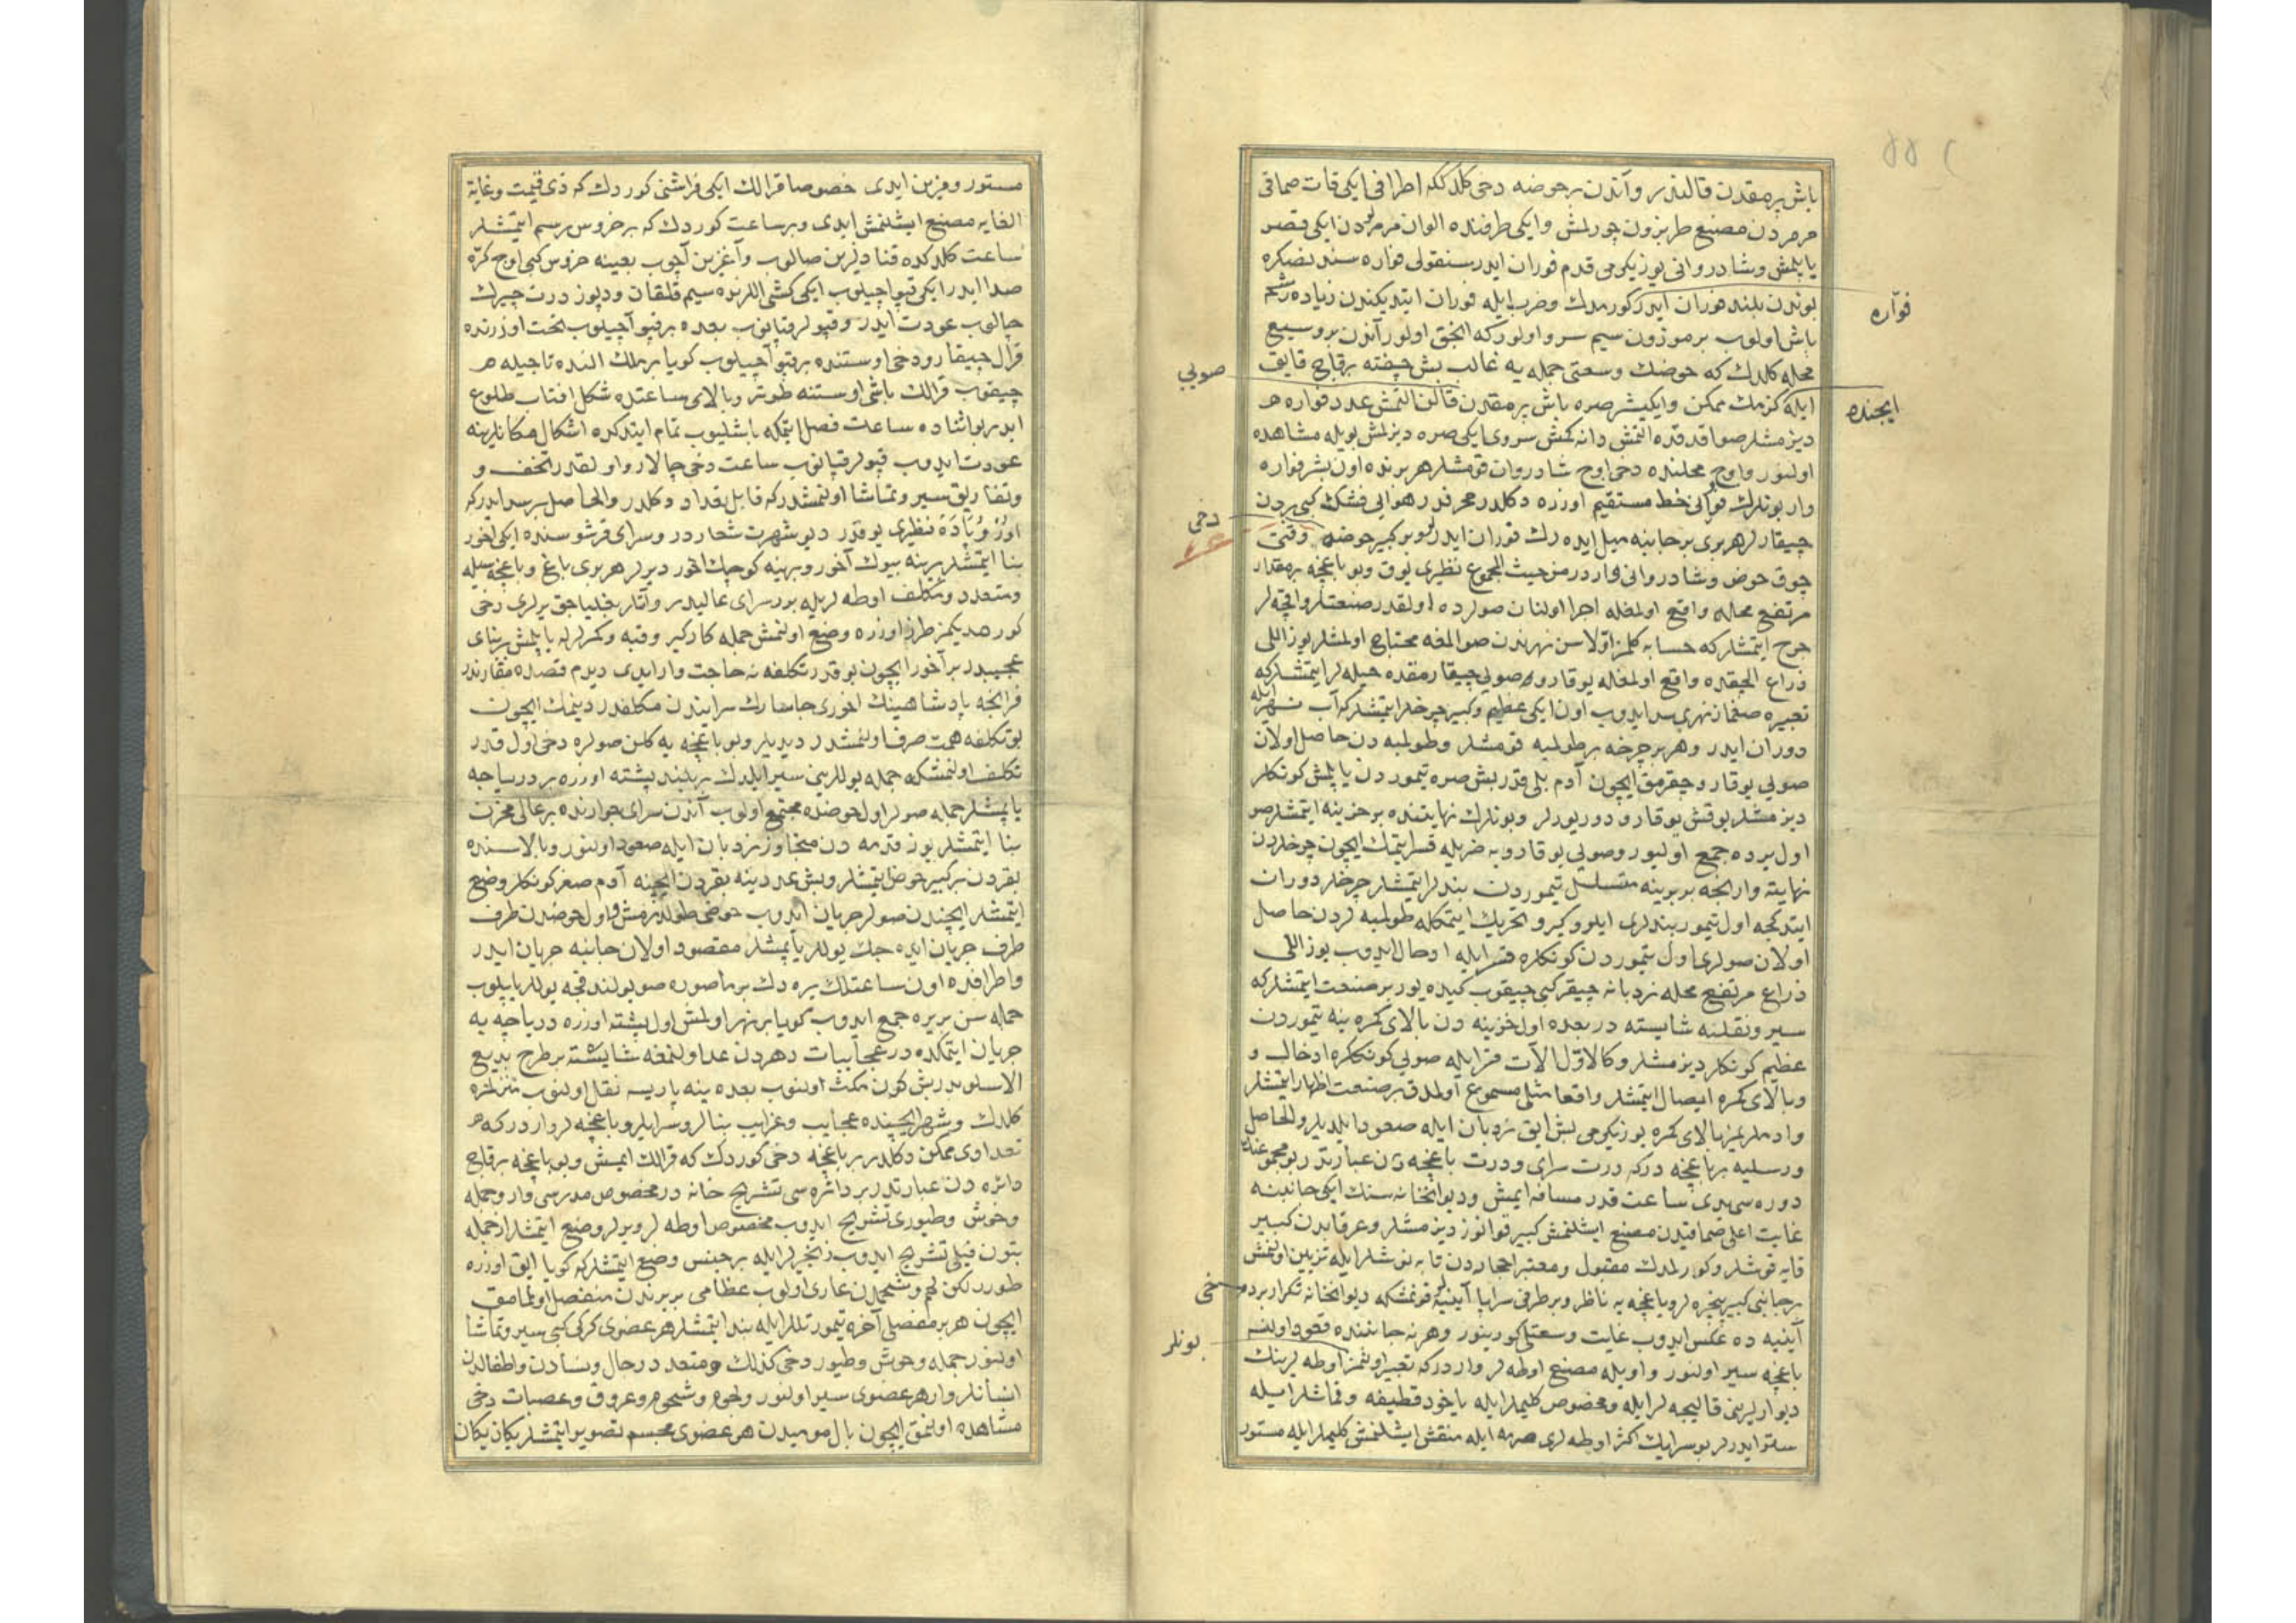 باش پرمقدن قالندر و آندن بر حوضه دخی کلدککه اطرافی ایکی قات صماقی
مرمردن مصنع طربزون چورلمش و ایکی طرفنده الوان مرمردن ایکی قصر
یاپلمش و شادروانی یوز یکرمی قدم فوران ایدر سنقولی فواره سندنصکره
بوندن بلند فوران ایدر کورمدك و ضرب ایله فوران ایتدیکندن زیاده
باش اولوب بر موزون سیم سرو اولور که انجق اولور آندن بر وسیع
محله کلدك که حوضك وسعتی جمله یه غالب بش چفته برقاچ قایق
ایله کزمك ممکن و ایکیشر صره باش پرمقدن قالن التمش عدد فواره
دیزمشلر صو اقدقده التمش دانه کمش سروی ایکی صره دیزلمش بویله مشاهده
اولنور و اوچ محلنده دخی اوچ شادروان قومشلر هر برنده اون بشر فواره
وار بونلرك خط مستقیم اوزره دکلدر محرفدر هوایی فشك کبی بردن
چیقارلر هر بری بر جانبه میل ایده رك فوران ایدرلر بو بر کبیر حوضدر
چوق حوض و شادروانی وار در من حیث المجموع نظیری یوق و بو باغچه بر مقدار
مرتفع محله واقع اولمغله اجرا اولنان صولرده اولقدر صنعتلر و اقچه لر
خرج ایتمشلر که حسابه کلمز اولا سن نهرندن صو المغه محتاج اولمشلر یوز اللی
ذراع الچقده واقع اولمغله یوقارو صویی چیقارمقده حیله لر ایتمشلرکه
تعبیره صغماز نهری سد ایدوب اون ایکی عظیم و کبیر چرخلر ایتمشلرکه آب نهر ایله
دوران ایدر و هر بر چرخه بر طولمبه قومشلر و طولمبه دن حاصل اولان
صویی یوقارو چقرمق ایچون آدم بلی قدر بش صره تیموردن یاپلمش کونکلر
دیزمشلر یوقش یوقارو دوریورلر و بونلرك نهایتنده بر خزینه ایتمشلر صو
اول یرده جمع اولیور و صویی یوقارویه ضربله قسر ایتمك ایچون چرخلردن
نهایته وارنجه بربرینه متسلسل تیموردن بندلر ایتمشلر چرخلر دوران
ایتدکجه اول تیمور بندلری ایلرو و کیرو تحریك ایتمکله طولمبه لردن حاصل
اولان صولری اول تیموردن کونکلره قسر ایله ادخال ایدوب یوز اللی
ذراع مرتفع محله نردبانه چیقر کبی چیقوب کیده یور بر صنعت ایتمشلرکه
سیر و نقلنه شایسته در بعده اول خزینه دن بالای کمره ینه تیموردن
عظیم کونکلر دیزمشلر و کالاول الات قسر ایله صویی کونکلره ادخال و
و بالای کمره ایصال ایتمشلر واقعا مثلی مسموع اولمدق بر صنعت اظهار ایتمشلر
و ادملریمز بالای کمره یوز یکرمی بش ایق نردبان ایله صعود ایلدیلر و الحاصل
ورسلیه بر باغچه در که درت سرای و درت باغچه دن عبارتدر بو مجموعنك
دوره سی یدی ساعت قدر مسافه ایمش و دیوانخانه سنك ایکی جانبنه
غایت اعلی صماقیدن مصنع ایشلنمش کبیر قوانوز دیزمشلر و عرقابدن کبیر
قاپه قومشلر و کورلمدك مقبول و معتبر احجاردن قاپه نو شلر ایله تزیین اولنمش
بر جانبی کبیر پنجره لر و باغچه یه ناظر و بر طرفی سراپا آینه لر قونمشکه دیوانخانه تکرار برده
آینه ده عکس ایدوب غایت وسعتلی کورینور و هر نه جانبنده قعود اولنسه
باغچه سیر اولنور و اویله مصنع اوطه لر واردر که تعبیر اولنمز اوطه لرینك
دیوارلرینی قالیچه لر ایله و مخصوص کلیملر ایله یاخود قطیفه و قماشلر ایله
ستر ایدرلر بو سرایك اکثر اوطه لری صرمه ایله منقش ایشلنمش کلیملر ایله مستور
فواره
صویی
ایچنده
دخی
دخی
بونلر
مستور و مزین ایدی خصوصا قرالك ایکی فراشنی کوردك که ذی قیمت و غایة
الغایه مصنع ایشلنمش ایدی و بر ساعت کوردك که بر خروس رسم ایتمشلر
ساعت کلدکده قنادلرین صالوب و آغزین آچوب بعینه خروس کبی اوچ کره
صدا ایدر ایکی قپو اچیلوب ایکی کشی اللرنده سیم قلقان و دیوز درت چیرك
چالوب عودت ایدر و قپولر قپانوب بعده بر قپو آچیلوب تخت اوزرنده
قرال چیقار و دخی اوستنده بر قپو آچیلوب کویا بر ملك النده تاجیله
چیقوب قرالك باشی اوستنه طوتر و بالای ساعتده شکل افتاب طلوع
ایدر بو اثناده ساعت فصل ایتمکه باشلیوب تمام ایتدکده اشکال مکانلرینه
عودت ایدوب قپولر قپانوب ساعت دخی چالار و اولقدر تحف و
و تفاریق سیر و تماشا اولنمشدر که قابل تعداد دکلدر و الحاصل
اوروپاده نظیری یوقدر دیو شهرت شعاردر و سرای قرشوسنده ایکی آخور
بنا ایتمشلر برینه بیوك آخور و برینه کوچك اخور دیرلر هر بری باغ و باغچه سیله
و متعدد و مکلف اوطه لریله بر سرای عالیدر و آتلر بغلیاجق یرلری دخی
کورمدیکمز طرز اوزره وضع اولنمش جمله کارکیر و قبه و کمرلرله یاپلمش بنای
عجیبدر بر آخور ایچون بو قدر تکلفه نه حاجت وار ایدی دیدم قصده مقارندر
فرانچه پادشاهینك اخوری چاسارك سرایندن مکلفدر دینمك ایچون
بو تکلفه همت صرف اولنمشدر دیدیلر و بو باغچه یه کلن صولره دخی اول قدر
تکلف اولنمشکه جمله یوللرینی سیر ایلدك بر بلند پشته اوزره بر دریاچه
یاپمشلر جمله صولر اول حوضده مجتمع اولوب آندن سرای جوارنده بر عالی مخزن
بنا ایتمشلر یوز قدمه دن متجاوز نردبان ایله صعود اولنور و بالاسنده
بقردن بر کبیر حوض ایتمشلر و بش عدد ینه بقردن ایچنه آدم صغر کونکلر وضع
ایتمشلر ایچندن صولر جریان ایدوب حوضی طولدرمش و اول حوضدن طرف
طرف جریان ایده جك یوللر یاپمشلر مقصود اولان جانبه جریان ایدر
و اطرافده اون ساعتلك یره دك بر ماصوره صو بولندقجه یوللر یاپلوب
جمله سن بر یره جمع ایدوب کویا بر نهر اولمش اول پشته اوزره دریاچه یه
جریان ایتمکده در عجایبات دهردن عد اولنمغه شایسته بر طرح بدیع
الاسلوبدر بش کون مکث اولنوب بعده ینه پاریسه نقل اولنوب منزلمزه
کلدك و شهر ایچینده عجایب و غرایب بنالر و سرایلر و باغچه لر واردر که
تعدادی ممکن دکلدر بر باغچه دخی کوردك که قرالك ایمش و بو باغچه برقاچ
دائره دن عبارتدر بر دائره سی تشریح خانه در مخصوص مدرسی وار و جمله
وحوش و طیوری تشریح ایدوب مخصوص اوطه لر و یرلر وضع ایتمشلر ازجمله
بتون فیلی تشریح ایدوب زنجیرلر ایله بر جنس وضع ایتمشلرکه کویا ایق اوزره
طورر لکن لحم و شحمدن عاری اولوب عظامی بربرندن منفصل اولمامق
ایچون هر بر مفصلی آخره تیمور تللر ایله بند ایتمشلر هر عضوی کرکی کبی سیر و تماشا
اولنور جمله وحوش و طیور دخی کذلك و متعدد رجال و نسادن و اطفالدن
انسانلر وار هر عضوی سیر اولنور و لحوم و شحوم و عروق و عصبات دخی
مشاهده اولنمق ایچون بال مومیدن هر عضوی مجسم تصویر ایتمشلر یکان یکان